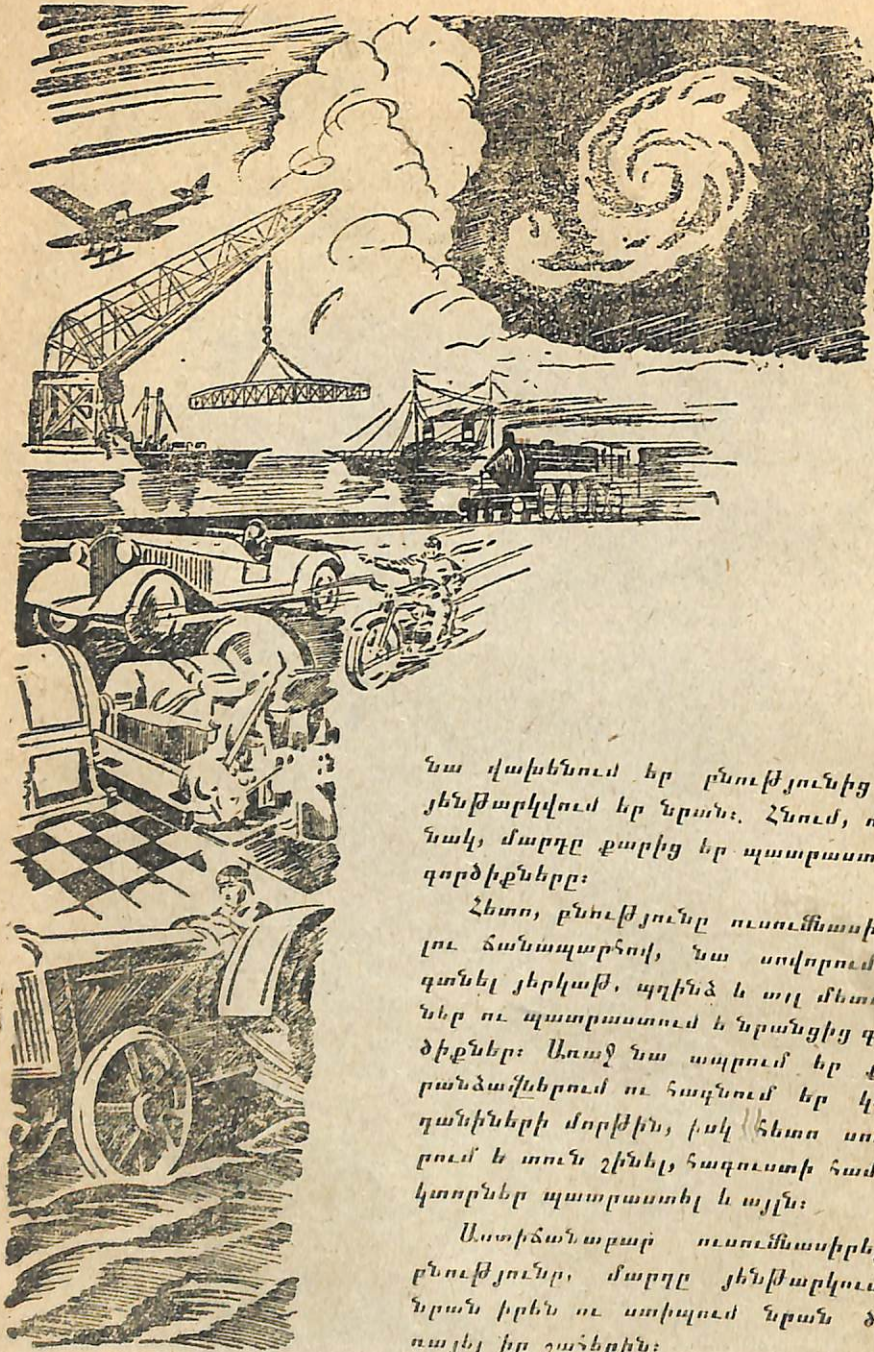 նա վախենում եր բնությունից
յենթարկվում եր նրան։ Հնում, ո
նակ, մարդը քարից եր պատրաստ
գործիքները։
Հետո, բնությունը ուսումնասի
լու ճանապարհով, նա սովորում
գտնել յերկաթ, պղինձ և այլ մետ
ներ ու պատրաստում և նրանցից գ
ծիքներ։ Առաջ նա ապրում եր ք
րանձավներում ու հագնում եր կ
դանիների մորթին, իսկ հետո սո
րում և տուն շինել, հագուստի համ
կտորներ պատրաստել և այլն։
Աստիճանաբար ուսումնասիրե
բնությունը, մարդը յենթարկում
նրան իրեն ու ստիպում նրան ծ
ռայել իր շահերին։